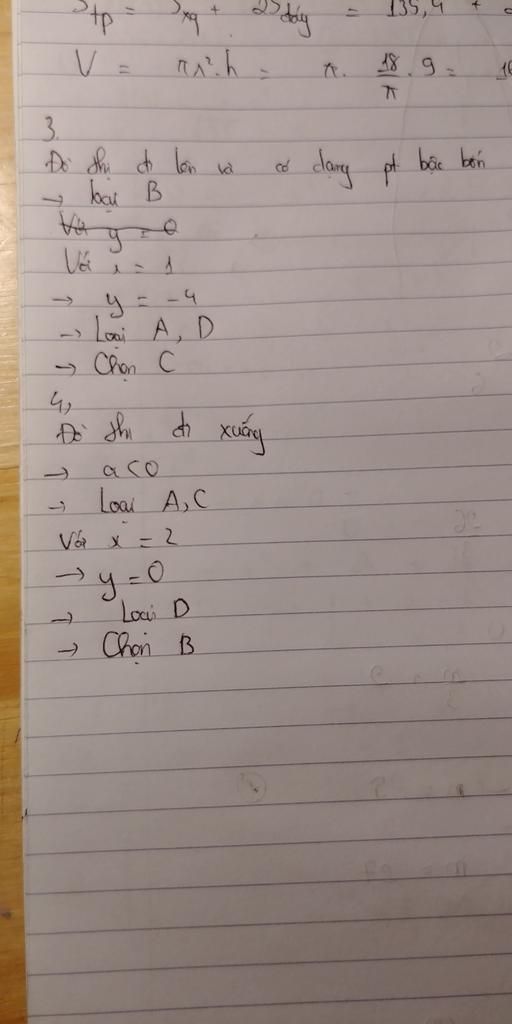 Stp = Sxq + 2Sđáy = 135,4 +
V = πr².h = π. 18/π . 9 =
3.
Đồ thị đi lên và có dạng pt bậc bốn
→ loại B
Với y = 0
Với x = 1
→ y = -4
→ Loại A, D
→ Chọn C
4,
Đồ thị đi xuống
→ a<0
→ Loại A,C
Với x = 2
→ y = 0
→ Loại D
→ Chọn B